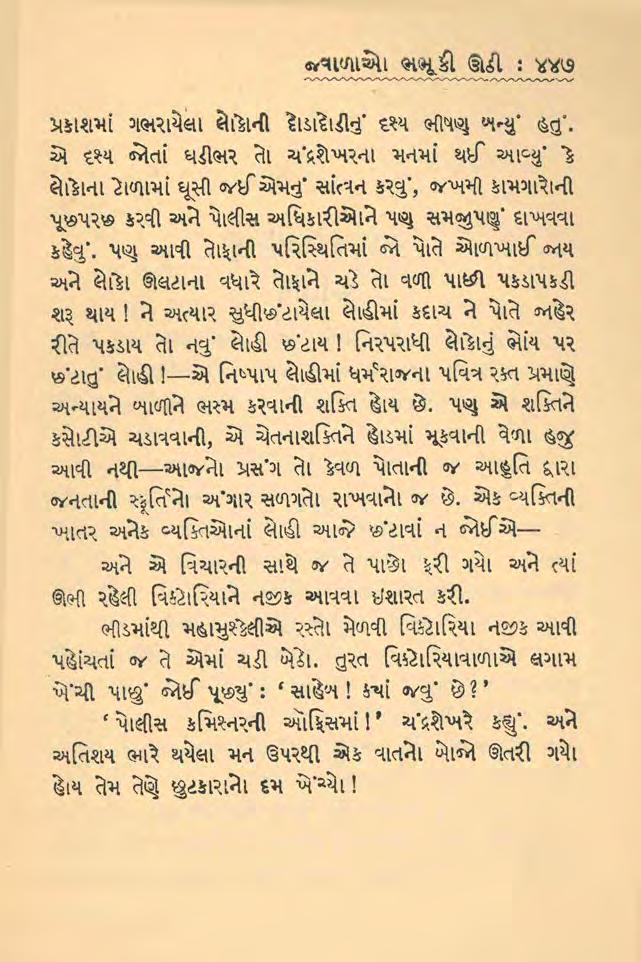 જવાળાઓ ભભૂકી ઊઠી : ૪૪૭
પ્રકાશમાં ગભરાયેલા લોકોની દોડાદોડીનું દશ્ય ભીષણ બન્યું હતું.
એ દશ્ય જોતાં ઘડીભર તો ચંદ્રશેખરના મનમાં થઈ આવ્યું કે
લોકોના ટોળામાં ઘૂસી જઈ એમનું સાંત્વન કરવું, જખમી કામગારોની
પૂછપરછ કરવી અને પોલીસ અધિકારીઓને પણ સમજુપણું દાખવવા
કહેવું. પણ આવી તોફાની પરિસ્થિતિમાં જો પોતે ઓળખાઈ જાય
અને લોકો ઊલટાના વધારે તોફાને ચડે તો વળી પાછી પકડાપકડી
શરૂ થાય ! ને અત્યાર સુધીછંટાયેલા લોહીમાં કદાચ ને પોતે જાહેર
રીતે પકડાય તો નવું લોહી છંટાય ! નિરપરાધી લોકોનું ભોંય પર
છંટાતું લોહી !—એ નિષ્પાપ લોહીમાં ધર્મરાજના પવિત્ર રક્ત પ્રમાણે
અન્યાયને બાળીને ભસ્મ કરવાની શક્તિ હોય છે. પણ એ શક્તિને
કસોટીએ ચડાવવાની, એ ચેતનાશક્તિને હોડમાં મૂકવાની વેળા હજુ
આવી નથી—આજનો પ્રસંગ તો કેવળ પોતાની જ આહૂતિ દ્વારા
જનતાની સ્ફૂર્તિનો અંગાર સળગતો રાખવાનો જ છે. એક વ્યક્તિની
ખાતર અનેક વ્યક્તિઓનાં લોહી આજે છંટાવાં ન જોઈએ—
અને એ વિચારની સાથે જ તે પાછો ફરી ગયો અને ત્યાં
ઊભી રહેલી વિક્ટોરિયાને નજીક આવવા ઇશારત કરી.
ભીડમાંથી મહામુશ્કેલીએ રસ્તો મેળવી વિક્ટોરિયા નજીક આવી
પહોંચતાં જ તે એમાં ચડી બેઠો. તુરત વિક્ટોરિયાવાળાએ લગામ
ખેંચી પાછું જોઈ પૂછ્યું : ‘ સાહેબ ! ક્યાં જવું છે ? ’
‘ પોલીસ કમિશ્નરની ઑફિસમાં ! ’ ચંદ્રશેખરે કહ્યું. અને
અતિશય ભારે થયેલા મન ઉપરથી એક વાતનો બોજો ઊતરી ગયો
હોય તેમ તેણે છુટકારાનો દમ ખેંચ્યો !